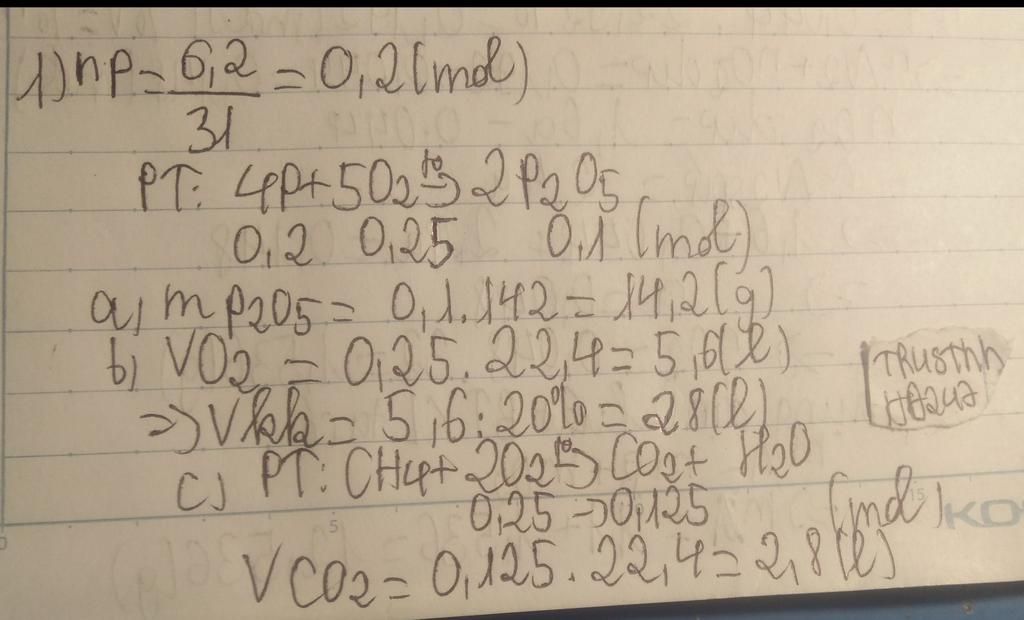 1) nP = 6,2/31 = 0,2 (mol)
PT: 4P + 5O2 t°→ 2P2O5
0,2 0,25 0,1 (mol)
a, mP2O5 = 0,1.142 = 14,2 (g)
b, VO2 = 0,25.22,4 = 5,6(l)
=> Vkk = 5,6:20% = 28(l)
c, PT: CH4 + 2O2 t°→ CO2 + H2O
0,25 → 0,125 (mol)
VCO2 = 0,125.22,4 = 2,8(l)
KO
5
15
0